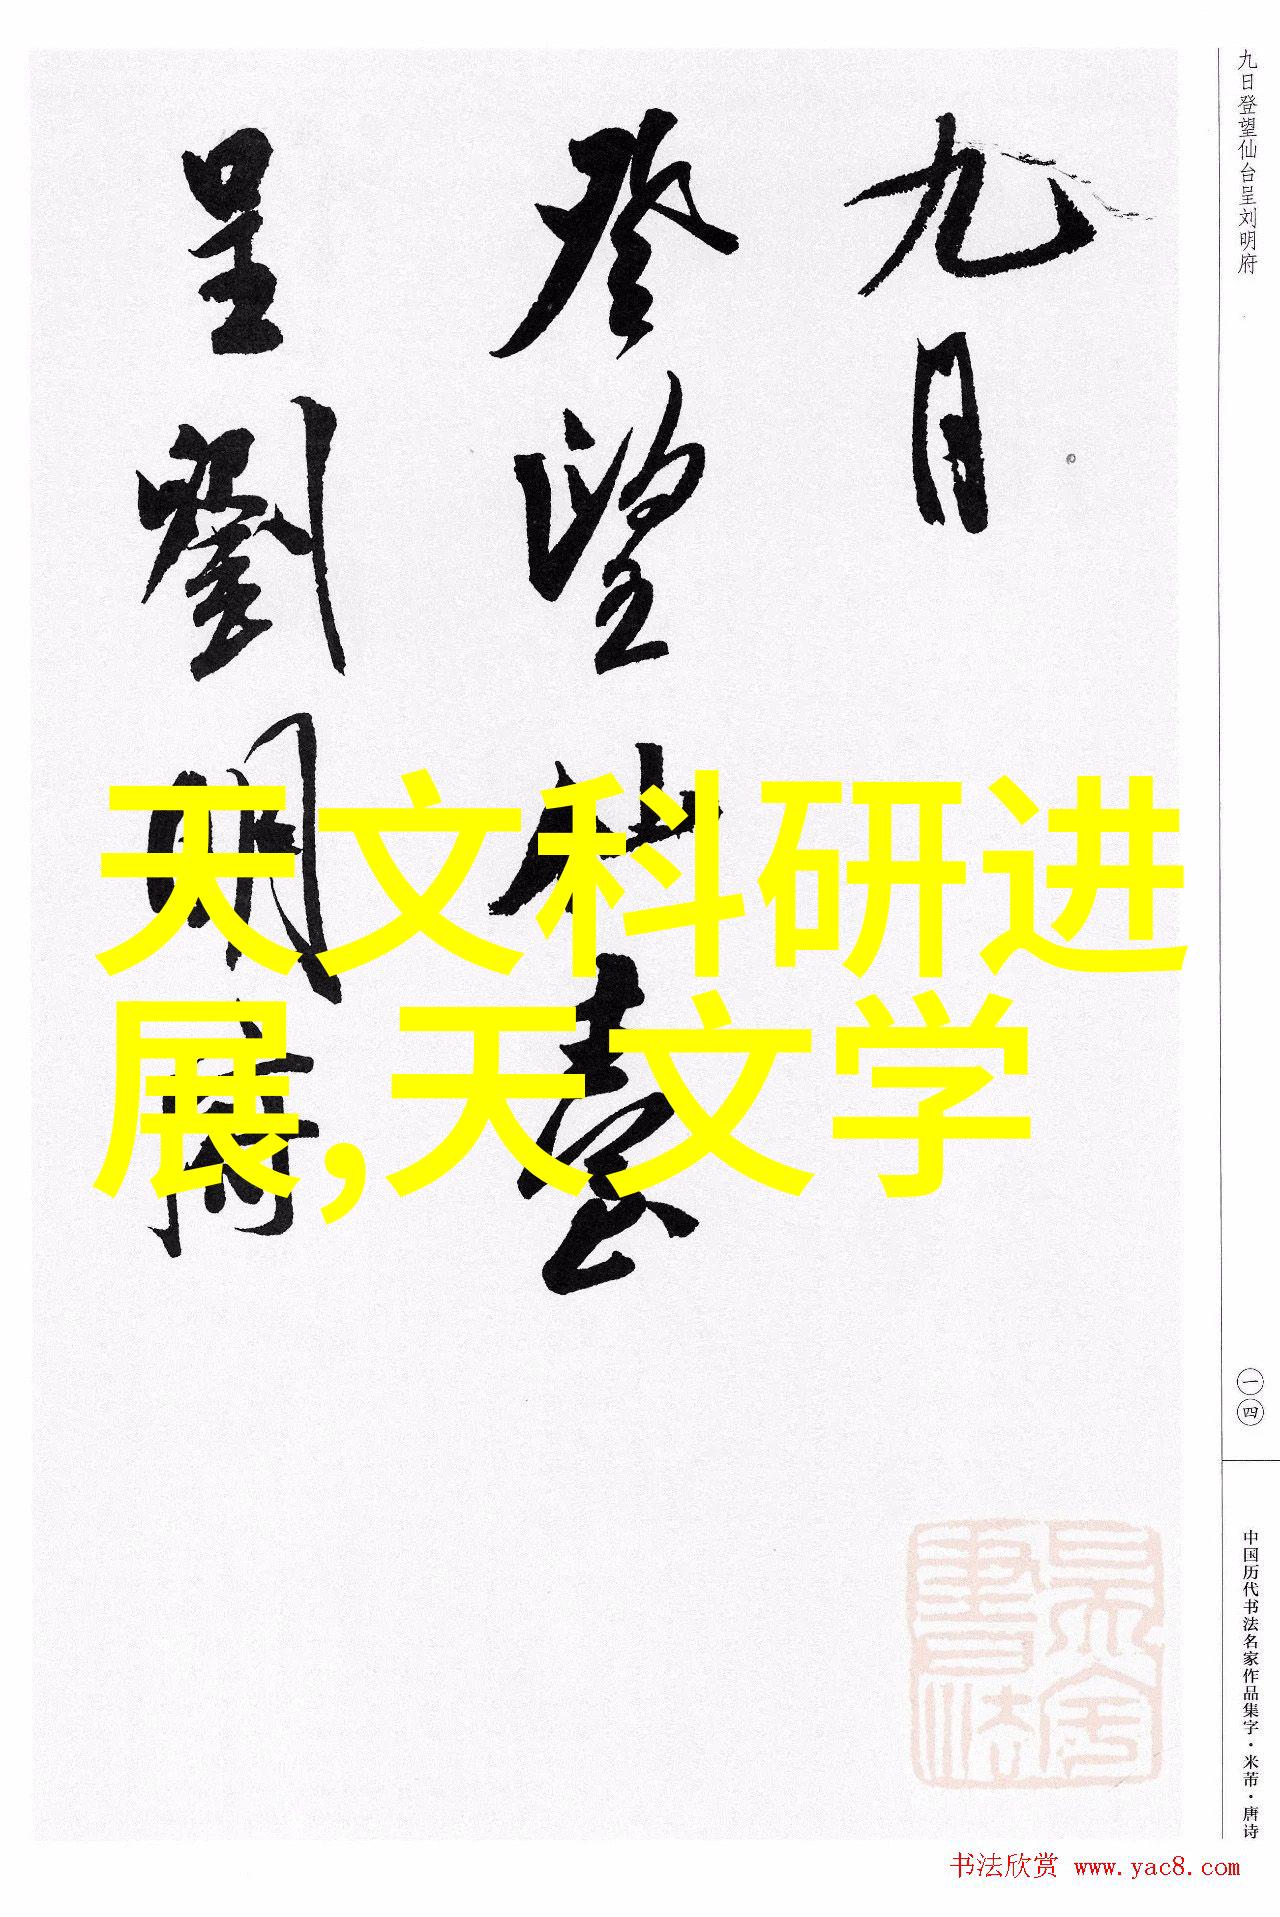 九日
登望仙臺
呈劉明府
天文科研进
展,天文学
九日登望仙台呈刘明府
一四
中国历代书法名家作品集字·米芾·唐诗
書法
书法欣赏 www.yac8.com